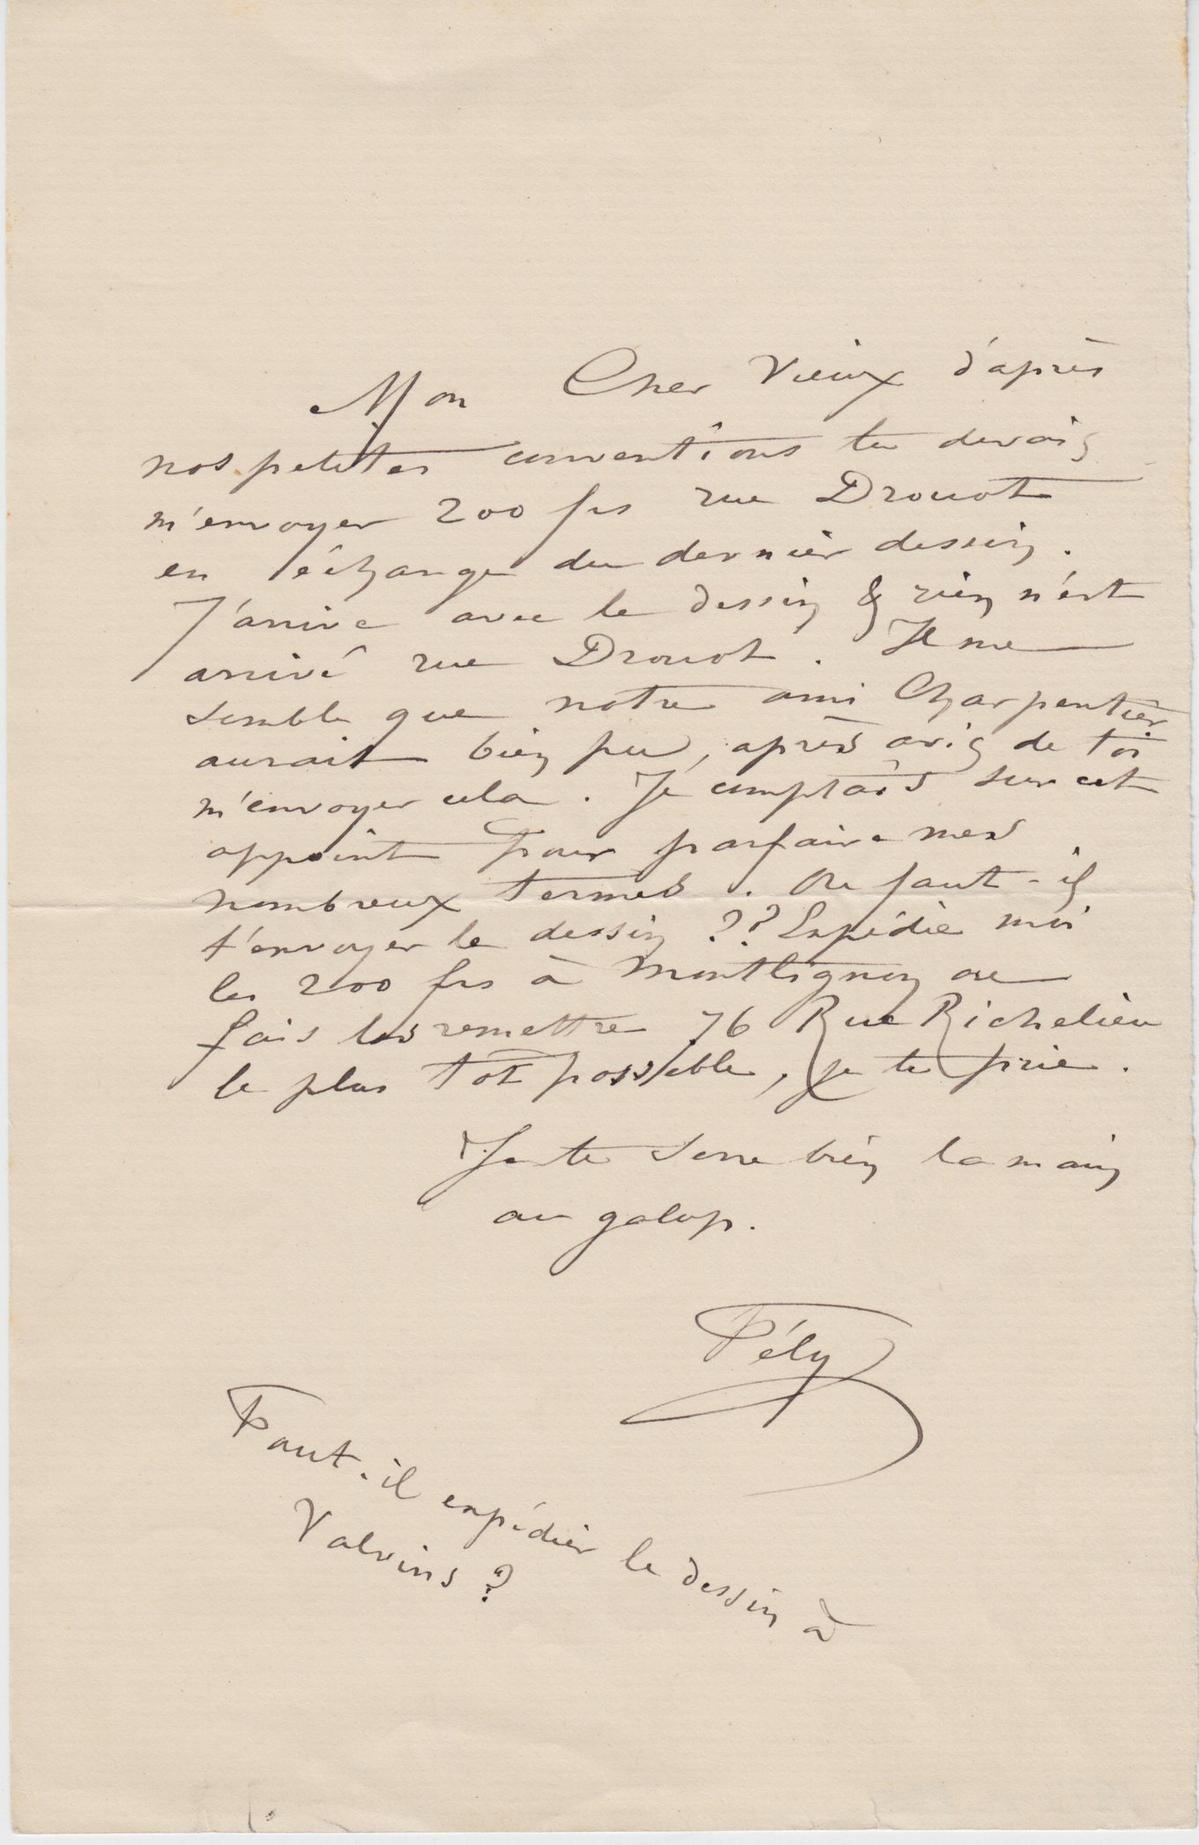 Mon Cher Vieux d'après
nos petites conventions tu devais
m'envoyer 200 frs rue Drouot
en échange du dernier dessin.
J'arrive avec le dessin & rien n'est
arrivé rue Drouot. Il me
semble que notre ami Charpentier
aurait bien pu, après avis de toi
m'envoyer cela. Je comptais sur cet
appoint pour parfaire mes
nombreux termes. Ou faut-il
t'envoyer le dessin ?? Expédie moi
les 200 frs à Montlignon ou
fais les remettre 76 Rue Richelieu
le plus tôt possible, je te prie.
Je te serre bien la main
au galop.
Fély
Faut-il expédier le dessin à
Valvins ?